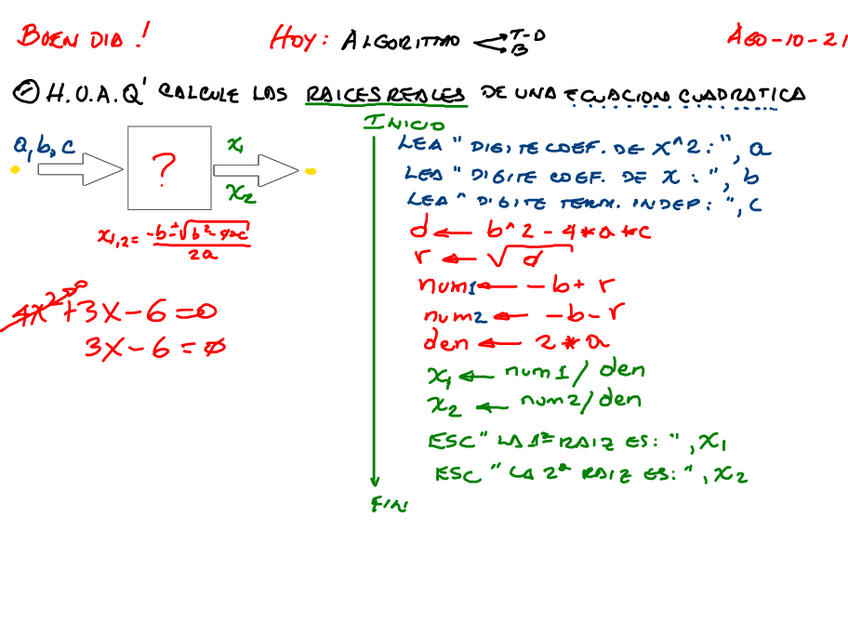 BUEN DIA! HOY: ALGORITMO T-D AGO-10-21
B
H.O.A.Q' CALCULE LAS RAICES REALES DE UNA ECUACION CUADRATICA
a, b, c ? x1
x2
x1,2 = -b±√b²-4ac
2a
4x²+3x-6=0
3x-6=0
INICIO
LEA "DIGITE COEF. DE X^2:", a
LEA "DIGITE COEF. DE X:", b
LEA "DIGITE TERM. INDEP:", c
d ← b^2-4*a*c
r ← √d
num1 ← -b+r
num2 ← -b-r
den ← 2*a
x1 ← num1/den
x2 ← num2/den
ESC "LA 1ª RAIZ ES:", X1
ESC "LA 2ª RAIZ ES:", X2
FIN